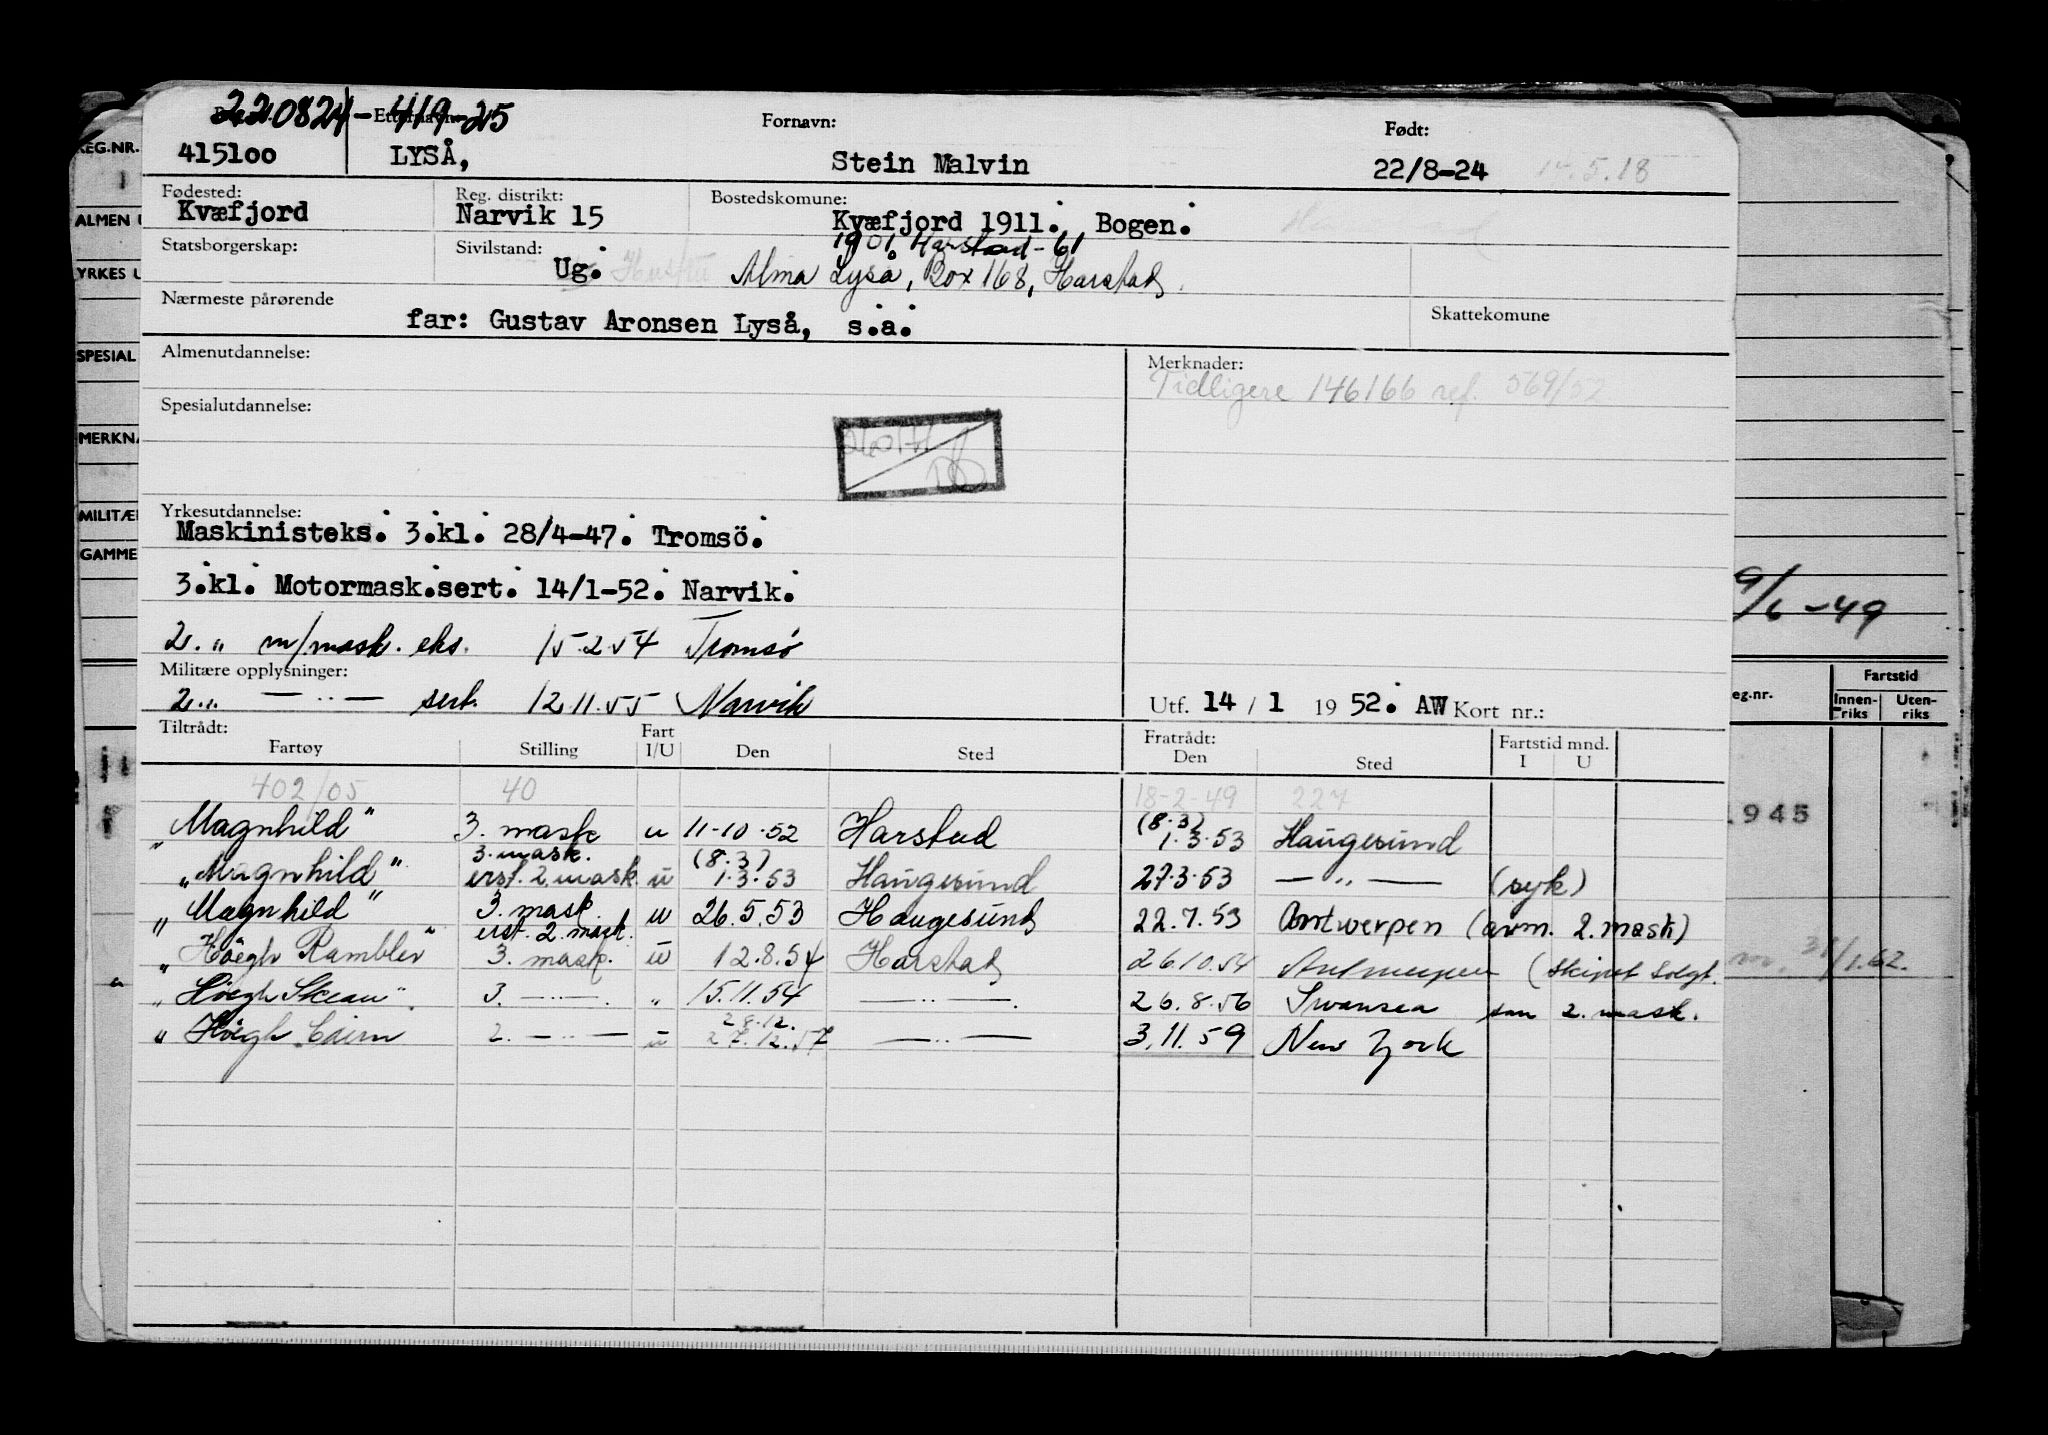 220824-419-25
Etternavn: Fornavn: Født:
415100 LYSÅ, Stein Malvin 22/8-24 14.5.18
Fødested: Reg. distrikt: Bostedskomune:
Kvæfjord Narvik 15 Kvæfjord 1911. Bogen.
1901 Harstad - 61
Statsborgerskap: Sivilstand:
Ug. Hustru Alma Lyså, Box 168, Harstad.
Nærmeste pårørende Skattekomune
far: Gustav Aronsen Lyså, s.a.
Almenutdannelse: Merknader:
Tidligere 146166 ref. 569/52
Spesialutdannelse:
Yrkesutdannelse:
Maskinisteks. 3.kl. 28/4-47. Tromsö.
3.kl. Motormask.sert. 14/1-52. Narvik.
2. " m/mask. eks. 15.2.54 Tromsö
Militære opplysninger:
2. " — " — sert. 12.11.55 Narvik
Utf. 14 / 1 1952. AW Kort nr.:
Tiltrådt: Fart Fratrådt: Fartstid mnd.
Fartøy Stilling I/U Den Sted Den Sted I U
402/05 40 18-2-49 227
"Magnhild" 3. mask u 11-10-52 Harstad (8.3) 1.3.53 Haugesund
"Magnhild" 3. mask. erst. 2 mask. u (8.3) 1.3.53 Haugesund 27.3.53 — " — (syk)
"Magnhild" 3. mask. erst. 2. mask. u 26.5.53 Haugesund 22.7.53 Antwerpen (avm. 2. mask)
"Höegh Rambler" 3. mask. u 12.8.54 Harstad 26.10.54 Antwerpen (Skipet solgt.
"Höegh Skean" 3. — " —. " 15.11.54 — " —. 26.8.56 Swansea som 2. mask.
"Höegh Cairn 2. — " — u 28.12. 27.12.57 — " — 3.11.59 New York
REG.NR.
ALMEN U
YRKES U
SPESIAL
MERKNA
MILITÆR
GAMME
9/6-49
eg.nr. Fartstid
Innen-riks Uten-riks
1945
31/1.62.